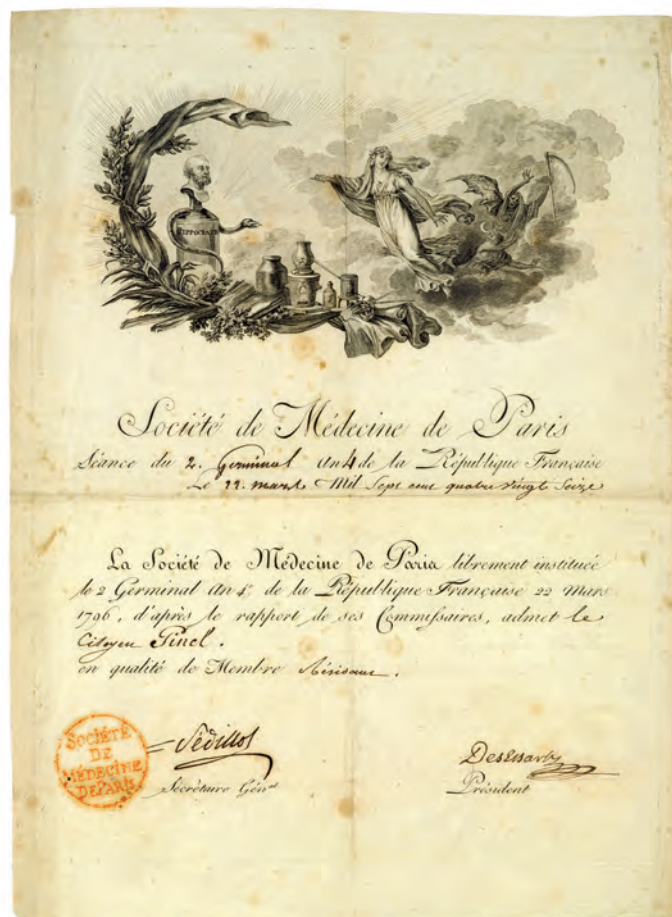 HIPPOCRATE
Société de Médecine de Paris
Séance du 2. Germinal An 4 de la République Française
Le 22. mars Mil Sept cent quatre vingt Seize
La Société de Médecine de Paris librement instituée
le 2 Germinal An 4e. de la République Française 22 Mars
1796, d'après le rapport de ses Commissaires, admet le
Citoyen Pinel.
en qualité de Membre Résidant.
SOCIÉTÉ
DE
MÉDECINE
DE PARIS
Sédillot
Secrétaire Génal
DesEssartz
Président